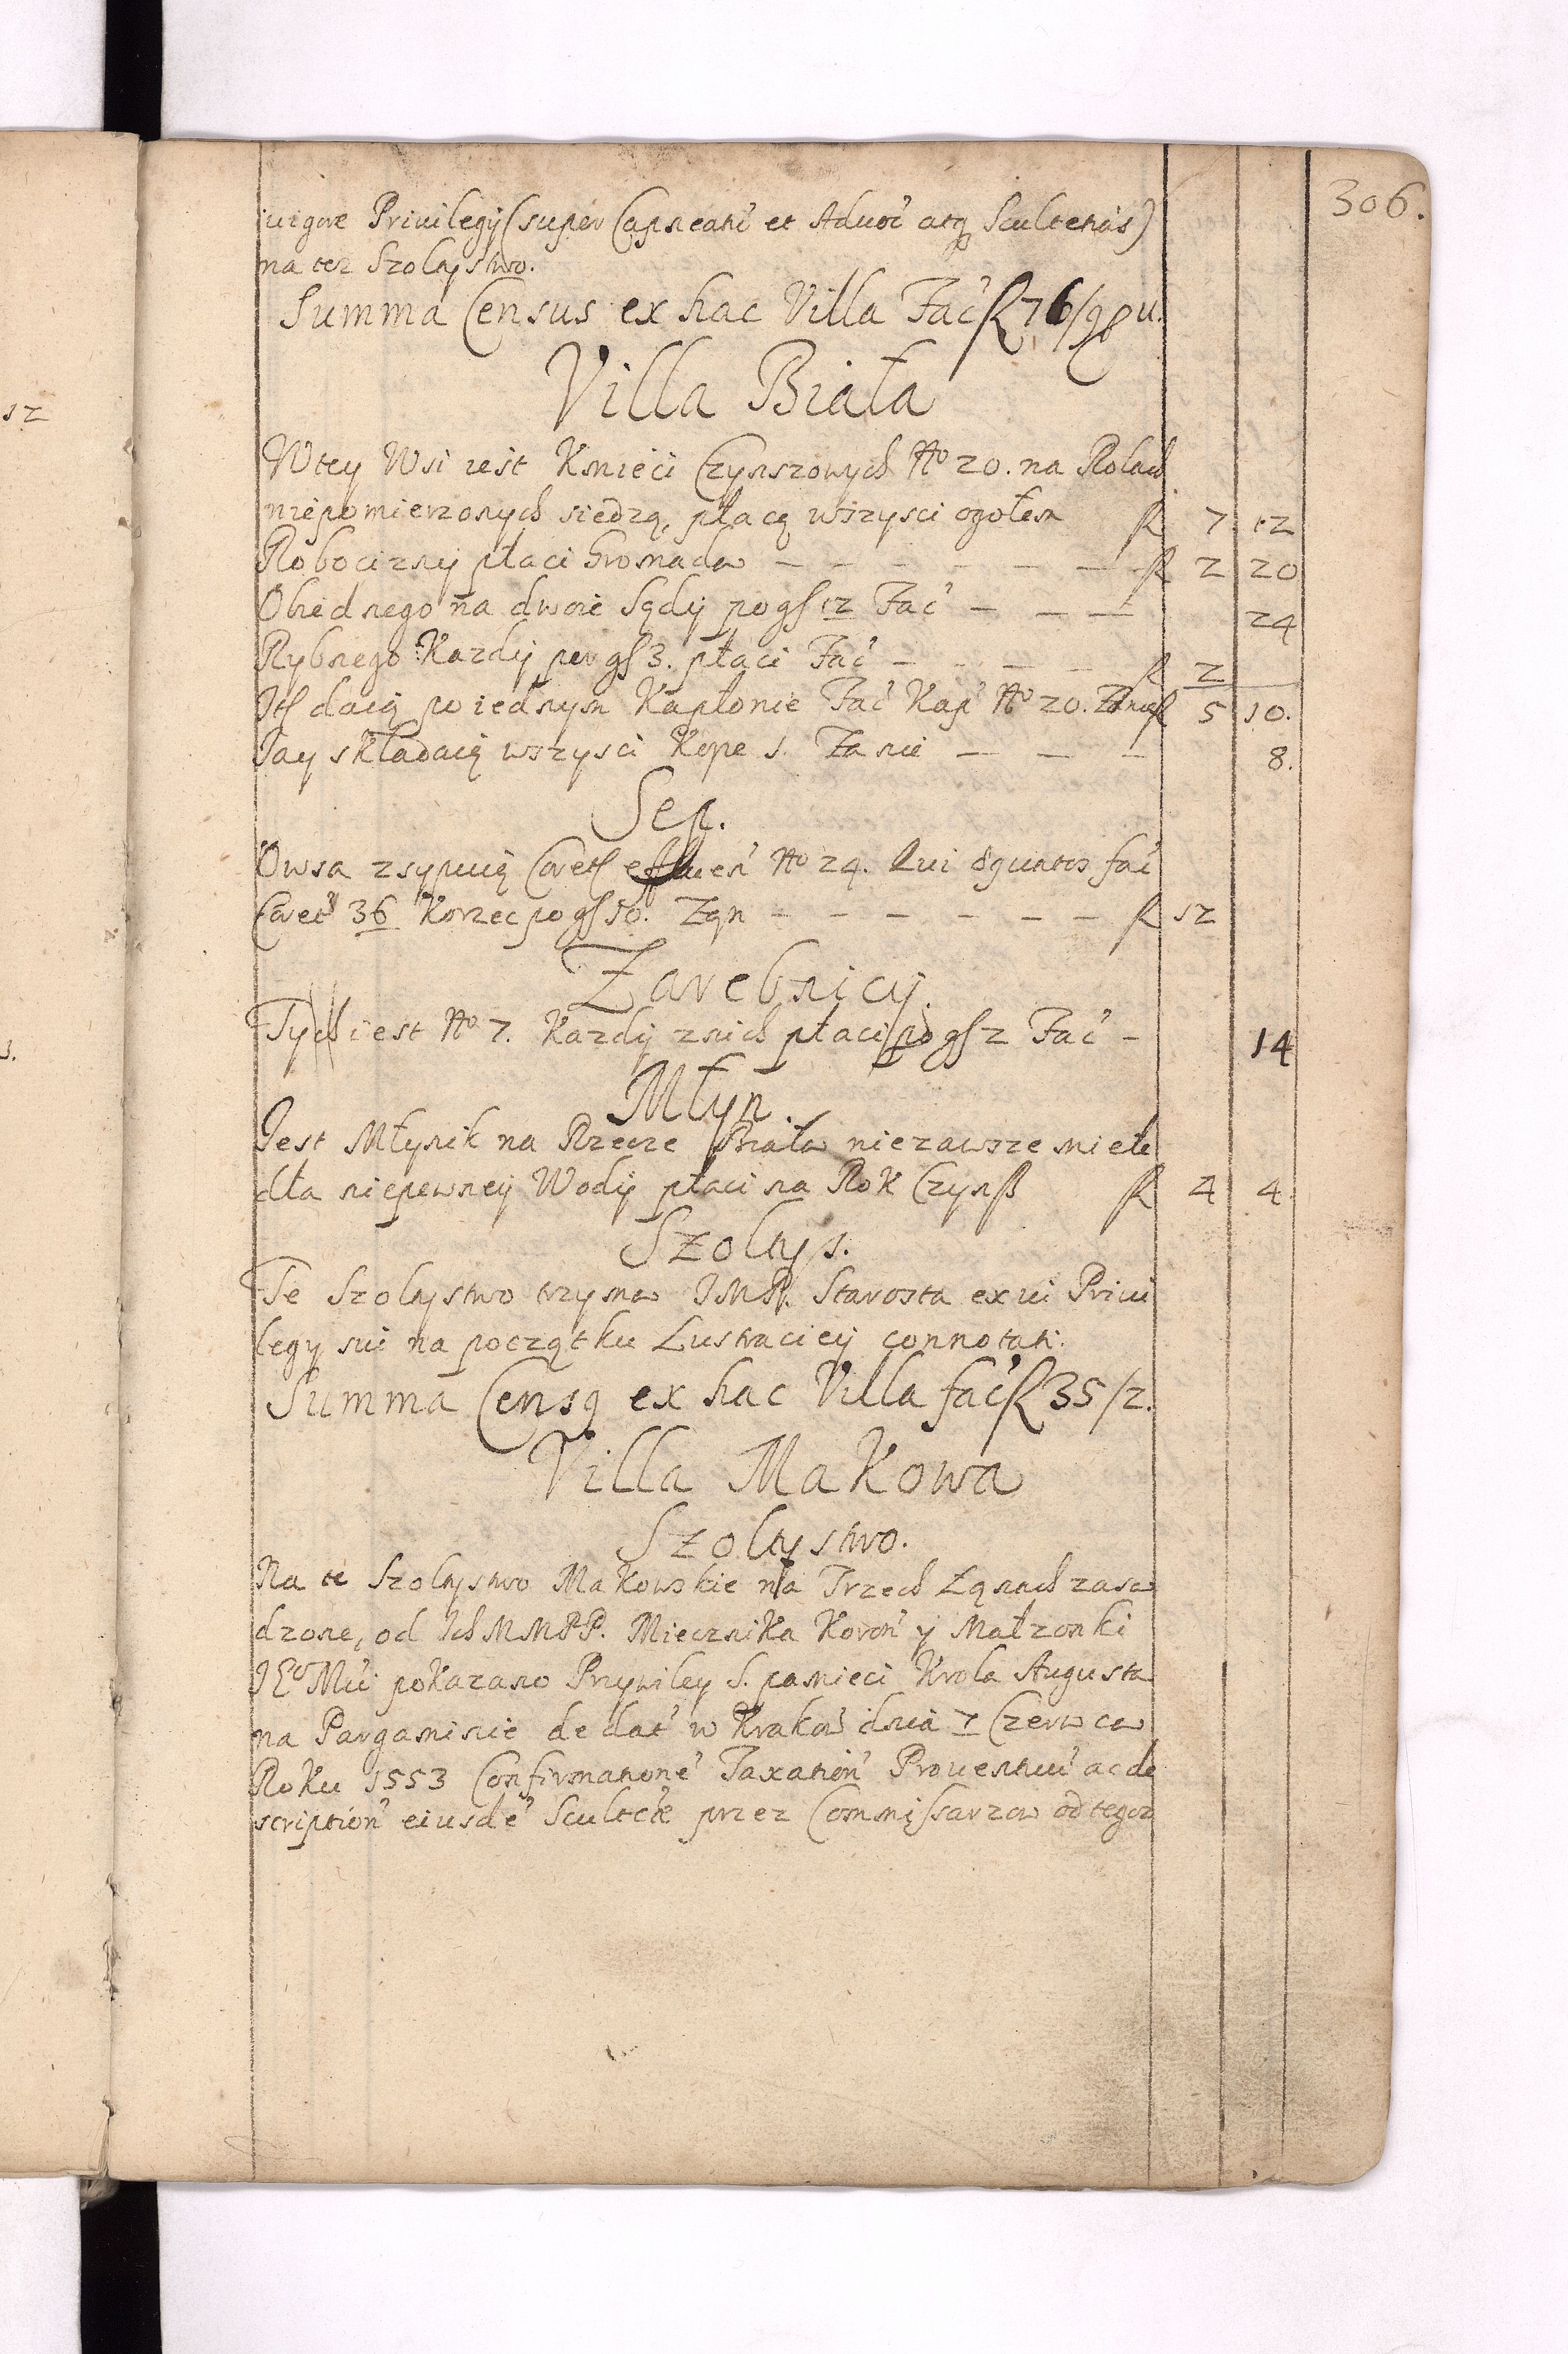 306.
uigore Priuilegÿ (super Capneatū et Aduoč atq Scultetiās)
na tez Szoltystwo.
Summa Census ex hac Villa Fač fl 76/9
Villa Biała
Wtey Wsi iest Kmieci Czynszowych No 20. na Rolach
niepomierzonych siedzą, płacą wszysci ogołem fl 7 12
Robocizny płaci Gromada — — — — — — fl 2 20
Obiednego na dwoie Sądÿ po gſ 12 Fač — — — 24
Rybnego Kazdÿ per gſ 3. płaci Fač — — — — fl 2
Itſ daią po iednym Kapłonie Fač Kap No 20. Za nie fl 5 10.
Iay składaią wszysci Kope 1. Za nie — — — 8.
Sep.
Owsa zsypuią Coretſ No 24. Qui fač
Coret 36 Korzec po gſ 10. Zqn — — — — — — fl 12
Zarebnicÿ.
Tych iest No 7. Kazdÿ znich płaci po gſ 2 Fač — 14
Młyn.
Jest Młynik na Rzece Biała niezawsze miele
dła niepewneÿ Wodÿ płaci na Rok Czynſz fl 4 4.
Szoltys.
Te Szoltystwo trzyma JMP. Starosta ex ui Priui
legy sui na początku Lustraciey connotati.
Summa Censq ex hac Villa fač fl 35/2.
Villa MaKowa
Szoltystwo.
Na te Szoltystwo MaKowskie na Trzech Łąnach zasa
dzone, od Ich MMPP. MieczniKa Koroń y Małzonki
JEo Mći poKazano Przywiley S. pamieci Krola Augusta
na Pargaminie de dať w Krakow dnia 7 Czerwca
RoKu 1553 Confirmationē Taxatioń Prouentuū ac de
scriptioń eiusdē Scultetie przez Commiſsarzow od tegoz
12